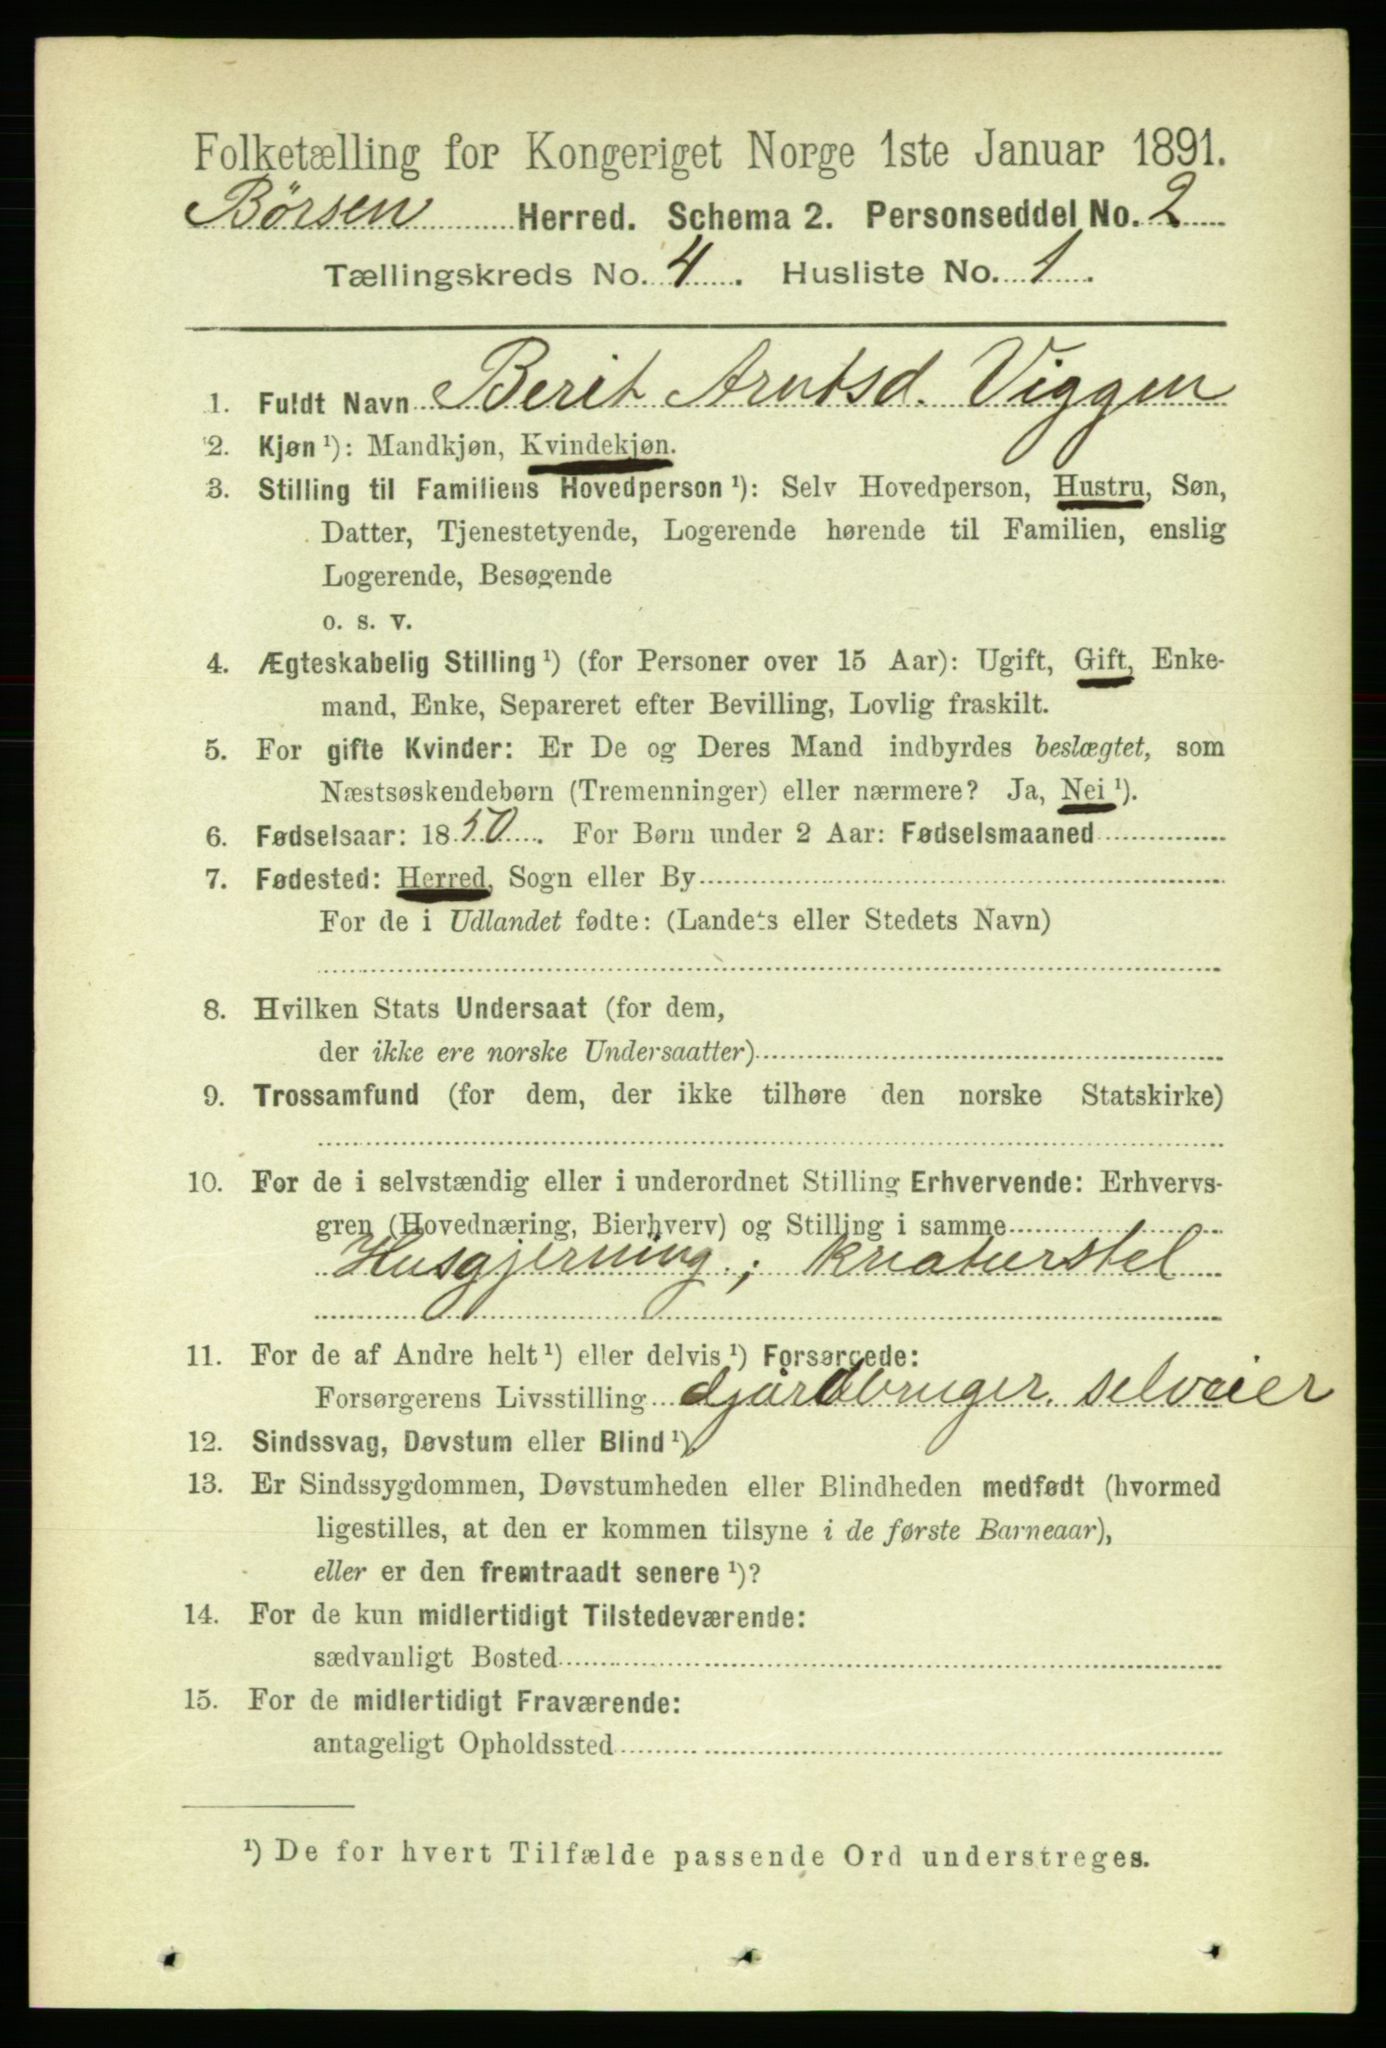 Folketælling for Kongeriget Norge 1ste Januar 1891.
Børsen Herred. Schema 2. Personseddel No. 2
Tællingskreds No. 4. Husliste No. 1.
1. Fuldt Navn Berit Arntsd. Viggen
2. Kjøn ¹): Mandkjøn, Kvindekjøn.
3. Stilling til Familiens Hovedperson ¹): Selv Hovedperson, Hustru, Søn,
Datter, Tjenestetyende, Logerende hørende til Familien, enslig
Logerende, Besøgende
o. s. v.
4. Ægteskabelig Stilling ¹) (for Personer over 15 Aar): Ugift, Gift, Enke-
mand, Enke, Separeret efter Bevilling, Lovlig fraskilt.
5. For gifte Kvinder: Er De og Deres Mand indbyrdes beslægtet, som
Næstsøskendebørn (Tremenninger) eller nærmere? Ja, Nei ¹).
6. Fødselsaar: 1850. For Børn under 2 Aar: Fødselsmaaned
7. Fødested: Herred, Sogn eller By
For de i Udlandet fødte: (Landets eller Stedets Navn)
8. Hvilken Stats Undersaat (for dem,
der ikke ere norske Undersaatter)
9. Trossamfund (for dem, der ikke tilhøre den norske Statskirke)
10. For de i selvstændig eller i underordnet Stilling Erhvervende: Erhvervs-
gren (Hovednæring, Bierhverv) og Stilling i samme
Husgjerning; kreaturstel
11. For de af Andre helt ¹) eller delvis ¹) Forsørgede:
Forsørgerens Livsstilling djürdbruger. selveier
12. Sindssvag, Døvstum eller Blind ¹).
13. Er Sindssygdommen, Døvstumheden eller Blindheden medfødt (hvormed
ligestilles, at den er kommen tilsyne i de første Barneaar),
eller er den fremtraadt senere ¹)?
14. For de kun midlertidigt Tilstedeværende:
sædvanligt Bosted
15. For de midlertidigt Fraværende:
antageligt Opholdssted
¹) De for hvert Tilfælde passende Ord understreges.